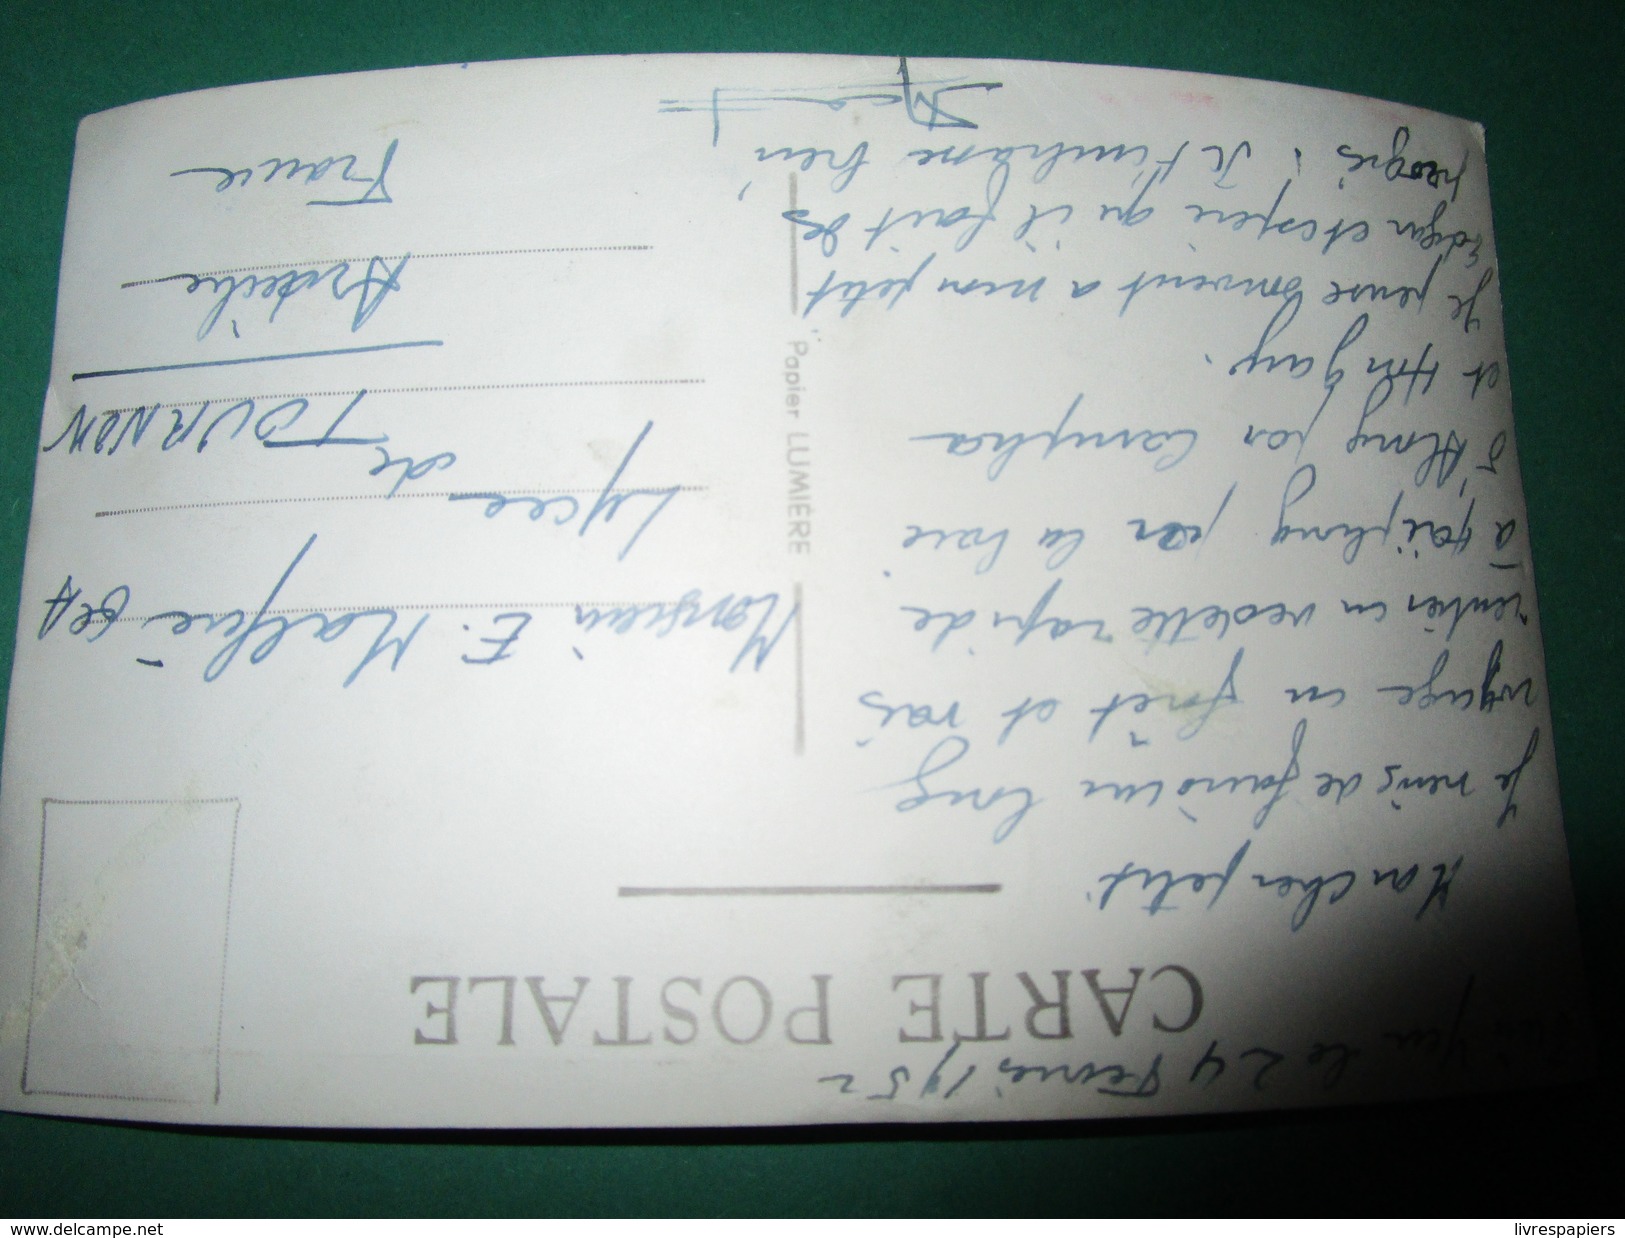 Yen le 24 Février 1952
CARTE POSTALE
Mon cher petit
Je viens de faire un long
voyage en forêt et vais
rentrer en vedette rapide
à Haïphong par la baie
d'Along par Campha
et Hongay.
Je pense souvent a mon petit
et espère qu'il fait des
progrès. Je t'embrasse bien
Papier LUMIÈRE
Monsieur E. Malfère 6eA
Lycee de
TOURNON
Ardèche
France
www.delcampe.net
livrespapiers